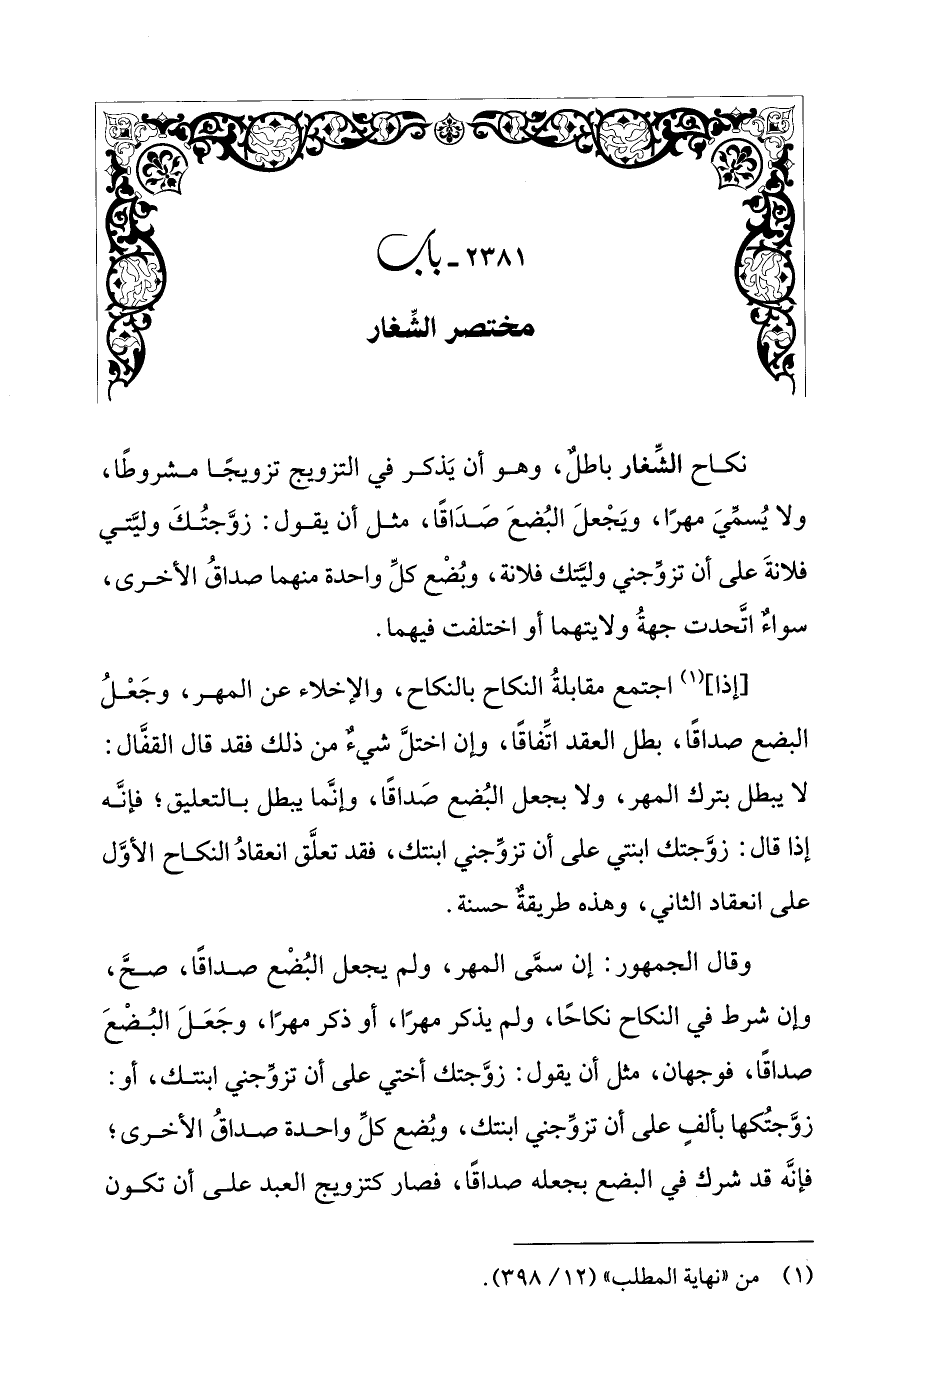 ٢٣٨١ - باب
مختصر الشِّغار
نكاح الشِّغار باطلٌ، وهو أن يَذكر في التزويج تزويجًا مشروطًا،
ولا يُسمِّيَ مهرًا، ويَجْعلَ البُضعَ صَدَاقًا، مثل أن يقول: زوَّجتُكَ وليَّتي
فلانةَ على أن تزوِّجني وليَّتك فلانة، وبُضْع كلِّ واحدة منهما صداقُ الأخرى،
سواءٌ اتَّحدت جهةُ ولايتهما أو اختلفت فيهما.
[إذا](١) اجتمع مقابلةُ النكاح بالنكاح، والإخلاء عن المهر، وجَعْلُ
البضع صداقًا، بطل العقد اتِّفاقًا، وإن اختلَّ شيءٌ من ذلك فقد قال القفَّال:
لا يبطل بترك المهر، ولا بجعل البُضع صَداقًا، وإنَّما يبطل بالتعليق؛ فإنَّه
إذا قال: زوَّجتك ابنتي على أن تزوِّجني ابنتك، فقد تعلَّق انعقادُ النكاح الأوَّل
على انعقاد الثاني، وهذه طريقةٌ حسنة.
وقال الجمهور: إن سمَّى المهر، ولم يجعل البُضْع صداقًا، صحَّ،
وإن شرط في النكاح نكاحًا، ولم يذكر مهرًا، أو ذكر مهرًا، وجَعَلَ البُضْعَ
صداقًا، فوجهان، مثل أن يقول: زوَّجتك أختي على أن تزوِّجني ابنتك، أو:
زوَّجتُكها بألفٍ على أن تزوِّجني ابنتك، وبُضع كلِّ واحدة صداقُ الأخرى؛
فإنَّه قد شرك في البضع بجعله صداقًا، فصار كتزويج العبد على أن تكون
(١) من «نهاية المطلب» (١٢/ ٣٩٨).